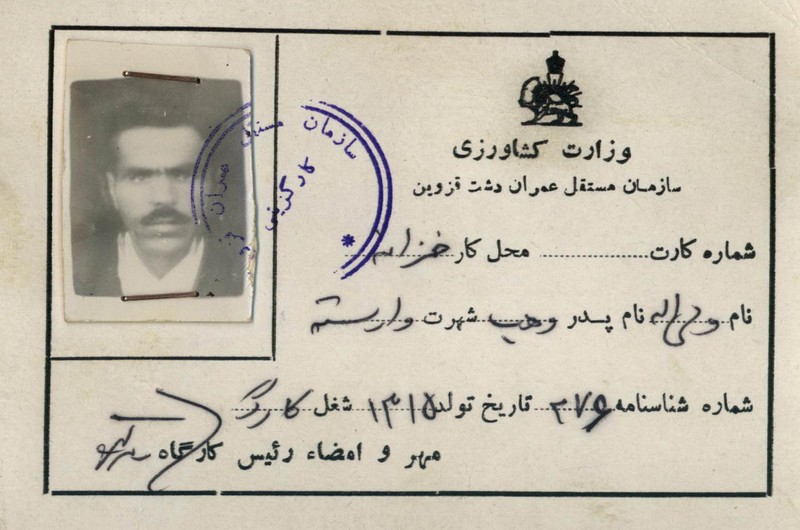 وزارت کشاورزی
سازمان مستقل عمران دشت قزوین
شماره کارت محل کار
نام ولی اله نام پدر وهب شهرت وارسته
شماره شناسنامه ۳۷۶ تاریخ تولد ۱۳۱۵ شغل کارگر
مهر و امضاء رئیس کارگاه
سازمان مستقل عمران
کارگزینی